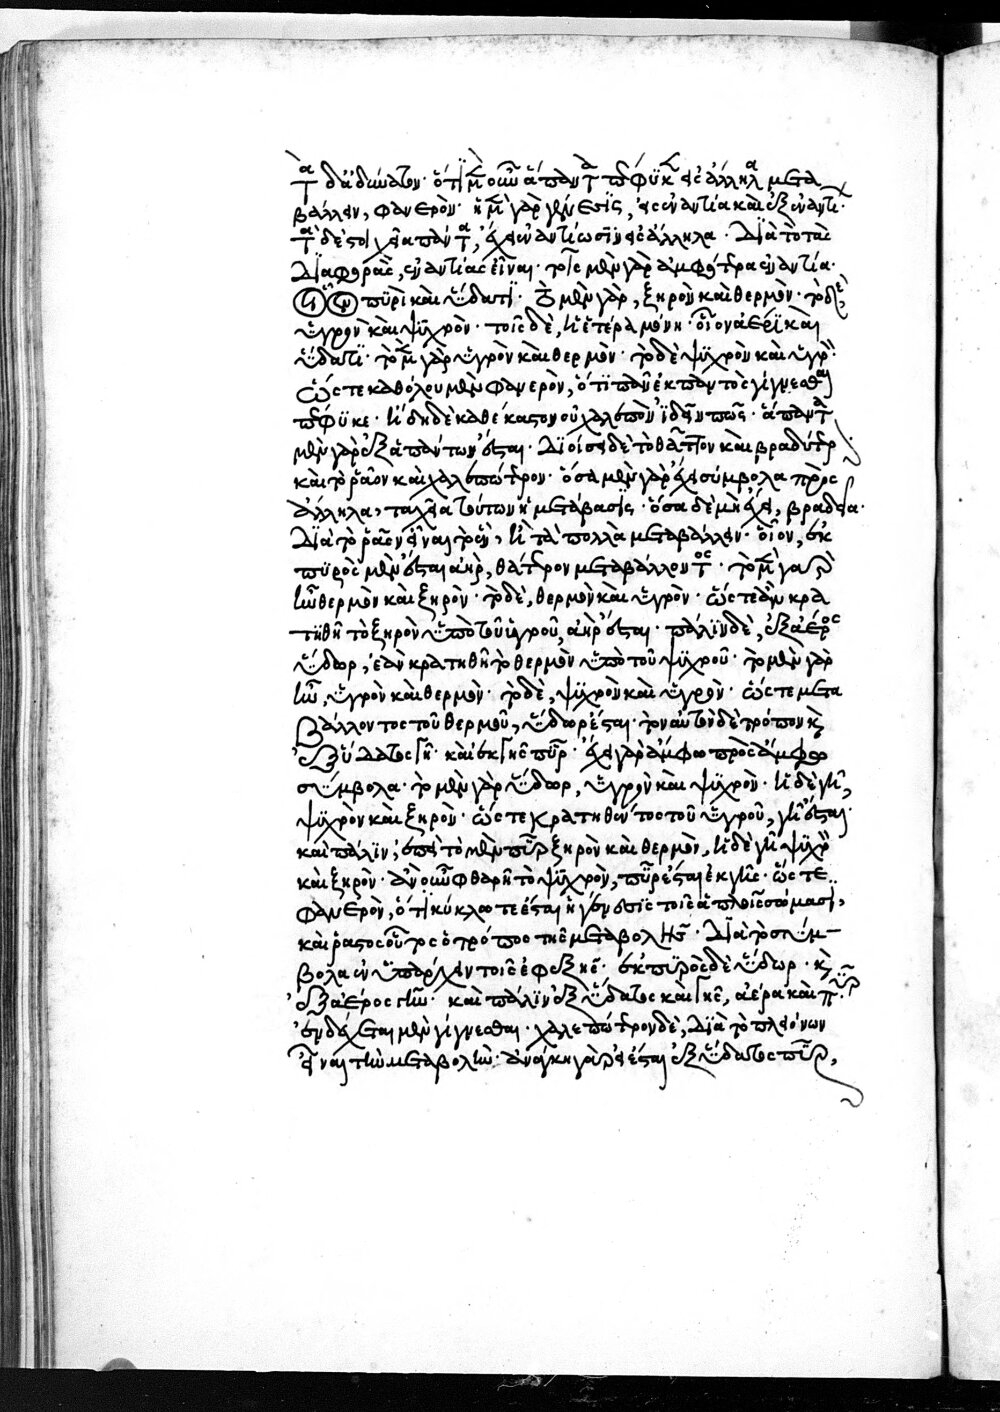 τὰ δ' ἀδύνατον· ὅτι μὲν οὖν ἅπαντα πέφυκεν εἰς ἄλληλα μετα
βάλλειν, φανερόν· ἡ μὲν γὰρ γένεσις, εἰς ἐναντία καὶ ἐξ ἐναντίων·
τὰ δὲ στοιχεῖα πάντα, ἔχει ἐναντίωσιν εἰς ἄλληλα· διὰ τὸ τὰς
διαφορὰς, ἐναντίας εἶναι· τοῖς μὲν γὰρ ἀμφότεραι ἐναντίαι·
οἷον πυρὶ καὶ ὕδατι· τὸ μὲν γὰρ, ξηρὸν καὶ θερμόν· τὸ δὲ,
ὑγρὸν καὶ ψυχρόν· τοῖς δὲ, ἡ ἑτέρα μόνη· οἷον ἀέρι καὶ
ὕδατι· τὸ μὲν γὰρ ὑγρὸν καὶ θερμόν· τὸ δὲ ψυχρὸν καὶ ὑγρόν·
ὥστε καθόλου μὲν φανερὸν, ὅτι πᾶν ἐκ παντὸς γίγνεσθαι
πέφυκε· ἤδη δὲ καθέκαστον οὐ χαλεπὸν ἰδεῖν πῶς· ἅπαντα
μὲν γὰρ ἐξ ἁπάντων ἔσται· διοίσει δὲ τὸ θᾶττον καὶ βραδύτερον
καὶ τὸ ῥᾷον καὶ χαλεπώτερον· ὅσα μὲν γὰρ ἔχει σύμβολα πρὸς
ἄλληλα, ταχεῖα τούτων ἡ μετάβασις· ὅσα δὲ μὴ ἔχει, βραδεῖα·
διὰ τὸ ῥᾷον εἶναι τὸ ἓν, ἢ τὰ πολλὰ μεταβάλλειν· οἷον, ἐκ
πυρὸς μὲν ἔσται ἀὴρ, θατέρου μεταβάλλοντος· τὸ μὲν γὰρ
ἦν θερμὸν καὶ ξηρόν· τὸ δὲ, θερμὸν καὶ ὑγρόν· ὥστε ἂν κρα
τηθῇ τὸ ξηρὸν ὑπὸ τοῦ ὑγροῦ, ἀὴρ ἔσται· πάλιν δὲ, ἐξ ἀέρος
ὕδωρ, ἐὰν κρατηθῇ τὸ θερμὸν ὑπὸ τοῦ ψυχροῦ· τὸ μὲν γὰρ
ἦν, ὑγρὸν καὶ θερμόν· τὸ δὲ, ψυχρὸν καὶ ὑγρόν· ὥστε μετα
βάλλοντος τοῦ θερμοῦ, ὕδωρ ἔσται· τὸν αὐτὸν δὲ τρόπον καὶ
ἐξ ὕδατος γῆ· καὶ ἐκ γῆς πῦρ· ἔχει γὰρ ἄμφω πρὸς ἄμφω
σύμβολα· τὸ μὲν γὰρ ὕδωρ, ὑγρὸν καὶ ψυχρόν· ἡ δὲ γῆ,
ψυχρὸν καὶ ξηρόν· ὥστε κρατηθέντος τοῦ ὑγροῦ, γῆ ἔσται·
καὶ πάλιν, ἐπεὶ τὸ μὲν πῦρ ξηρὸν καὶ θερμὸν, ἡ δὲ γῆ ψυχρὸν
καὶ ξηρόν· ἂν οὖν φθαρῇ τὸ ψυχρὸν, πῦρ ἔσται ἐκ γῆς· ὥστε
φανερὸν, ὅτι κύκλῳ τε ἔσται ἡ γένεσις τοῖς ἁπλοῖς σώμασι,
καὶ ῥᾷστος οὗτος ὁ τρόπος τῆς μεταβολῆς· διὰ τὸ σύμ-
βολα ἐνυπάρχειν τοῖς ἐφεξῆς· ἐκ πυρὸς δὲ ὕδωρ· καὶ
ἐξ ἀέρος γῆν· καὶ πάλιν ἐξ ὕδατος καὶ γῆς, ἀέρα καὶ πῦρ
ἐνδέχεται μὲν γίγνεσθαι· χαλεπώτερον δὲ, διὰ τὸ πλειόνων
εἶναι τὴν μεταβολήν· ἀνάγκη γὰρ εἰ ἔσται ἐξ ὕδατος πῦρ,